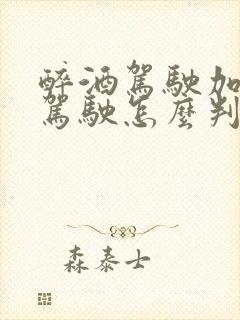 醉酒駕駛加
駕駛怎麼判
森泰士